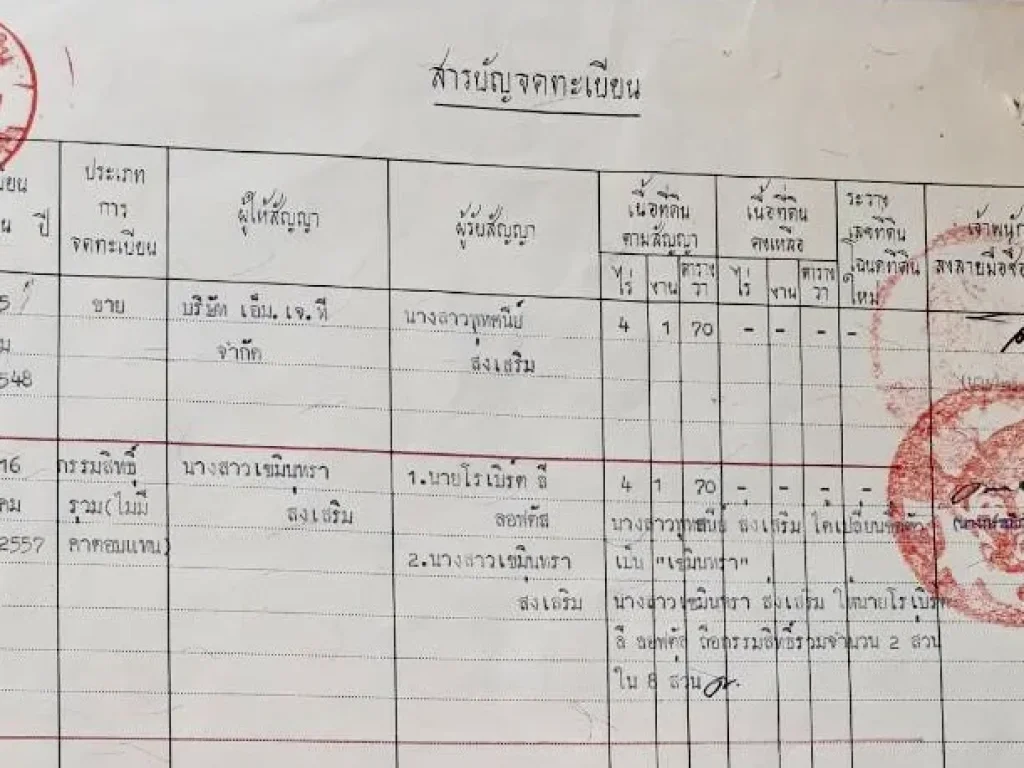 สารบัญจดทะเบียน
ประเภท
การ
จดทะเบียน
ปี
ผู้ให้สัญญา
ผู้รับสัญญา
เนื้อที่ดิน
ตามสัญญา
เนื้อที่ดิน
คงเหลือ
ระวาง
เลขที่ดิน
โฉนดที่ดิน
ใหม่
ไร่ งาน ตาราง
วา
ไร่ งาน ตาราง
วา
ขาย
บริษัท เอ็ม.เจ.ที
จำกัด
ส่งเสริม
4 1 70 - - - -
548
16
คม
2557
กรรมสิทธิ์
รวม(ไม่มี
ค่าตอบแทน)
นางสาวเขมินทรา
ส่งเสริม
1.นายโรเบิร์ต ลี
ลอฟตัส
2.นางสาวเขมินทรา
ส่งเสริม
4 1 70 - - - -
ส่งเสริม ได้เปลี่ยนชื่อตัว
เป็น "เขมินทรา"
นางสาวเขมินทรา ส่งเสริม ให้นายโรเบิร์ต
ลี ลอฟตัส ถือกรรมสิทธิ์รวมจำนวน 2 ส่วน
ใน 8 ส่วน